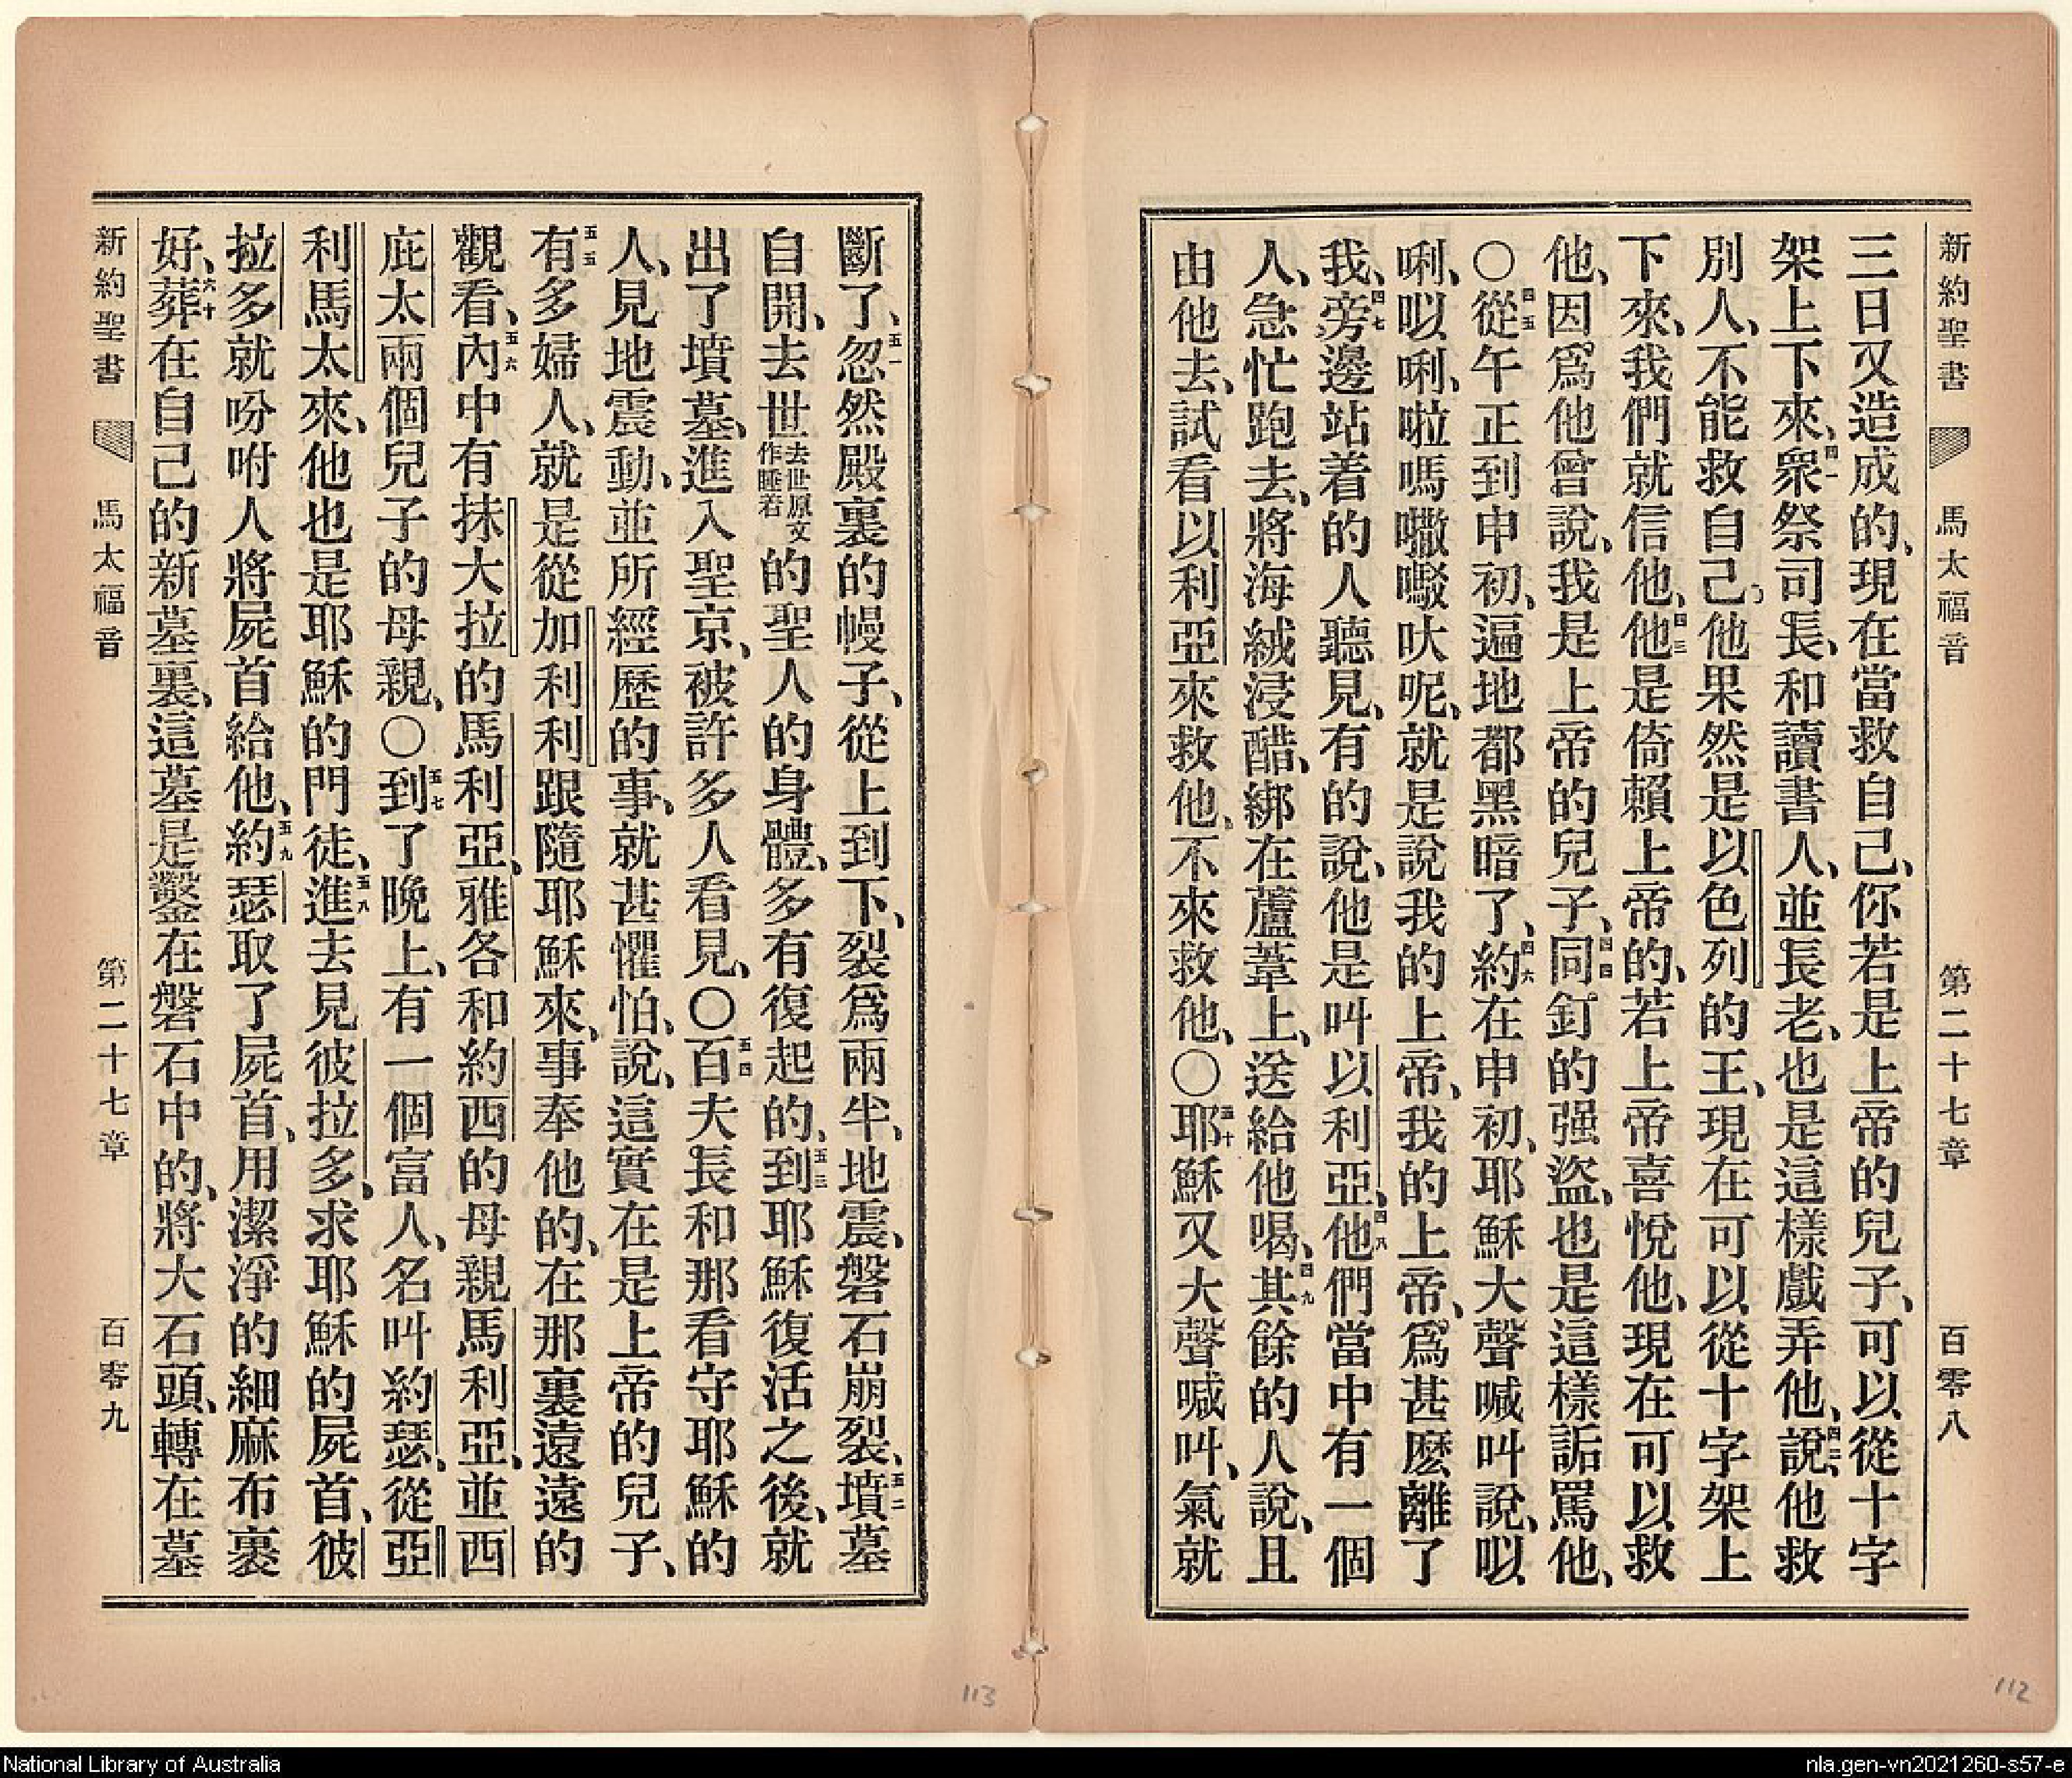 新約聖書 馬太福音 第二十七章 百零八
三日又造成的、現在當救自己、你若是上帝的兒子、可以從十字
架上下來、四一衆祭司長、和讀書人、並長老、也是這樣戲弄他、四二說、他救
別人、不能救自己、他果然是以色列的王、現在可以從十字架上
下來、我們就信他、四三他是倚賴上帝的、若上帝喜悅他、現在可以救
他、因爲他曾說、我是上帝的兒子、四四同釘的强盜、也是這樣詬罵他、
〇四五從午正到申初、遍地都黑暗了、四六約在申初、耶穌大聲喊叫說、㕥
唎、㕥唎、啦嗎𡄻㗁吠呢、就是說我的上帝、我的上帝、爲甚麽離了
我、四七旁邊站着的人聽見、有的說、他是叫以利亞、四八他們當中有一個
人、急忙跑去、將海絨浸醋、綁在蘆葦上、送給他喝、四九其餘的人說、且
由他去、試看以利亞來救他、不來救他、〇五十耶穌又大聲喊叫、氣就
斷了、五一忽然殿裏的幔子、從上到下、裂爲兩半、地震、磐石崩裂、五二墳墓
自開、去世去世原文作睡着的聖人的身體、多有復起的、五三到耶穌復活之後、就
出了墳墓、進入聖京、被許多人看見、〇五四百夫長和那看守耶穌的
人、見地震動、並所經歷的事、就甚懼怕、說、這實在是上帝的兒子、
五五有多婦人、就是從加利利跟隨耶穌來、事奉他的、在那裏遠遠的
觀看、五六內中有抹大拉的馬利亞、雅各和約西的母親馬利亞、並西
庇太兩個兒子的母親、〇五七到了晚上、有一個富人、名叫約瑟、從亞
利馬太來、他也是耶穌的門徒、五八進去見彼拉多、求耶穌的屍首、彼
拉多就吩咐人將屍首給他、五九約瑟取了屍首、用潔淨的細麻布裹
好、六十葬在自己的新墓裏、這墓是鑿在磐石中的、將大石頭、轉在墓
新約聖書 馬太福音 第二十七章 百零九
113
112
National Library of Australia
nla.gen-vn2021260-s57-e